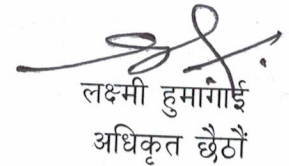 लक्ष्मी हुमागाई
अधिकृत छैठौं